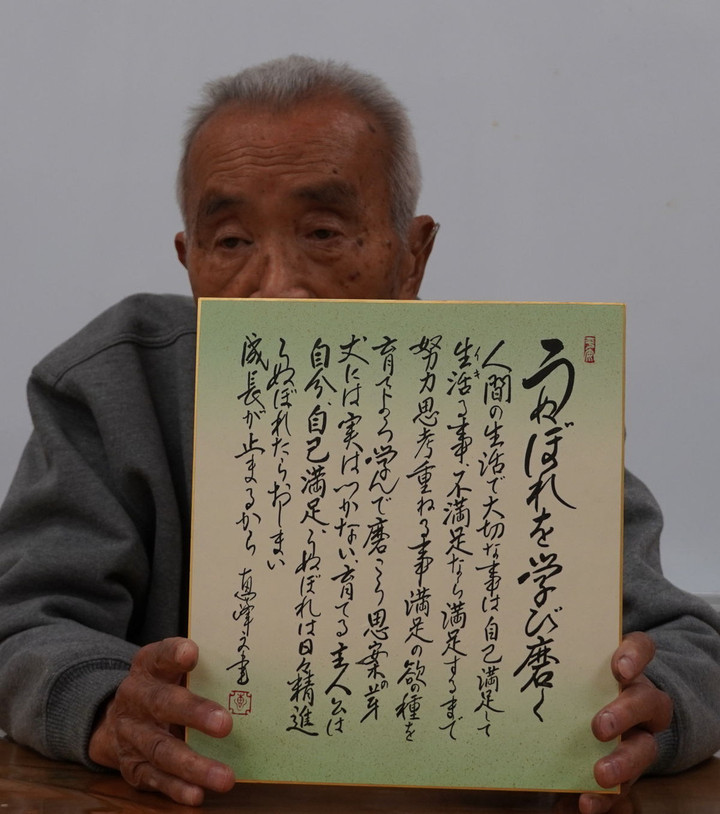 うぬぼれを学び磨く
人間の生活で大切な事は自己満足して
生活る事、不満足なら満足するまで
イキ
努力思考重ねる事満足の欲の種を
育てよう学んで磨こう思案の芽
丈には実はつかない、育てる主人公は
自分、自己満足、うぬぼれは日々精進
うぬぼれたらおしまい
成長が止まるから